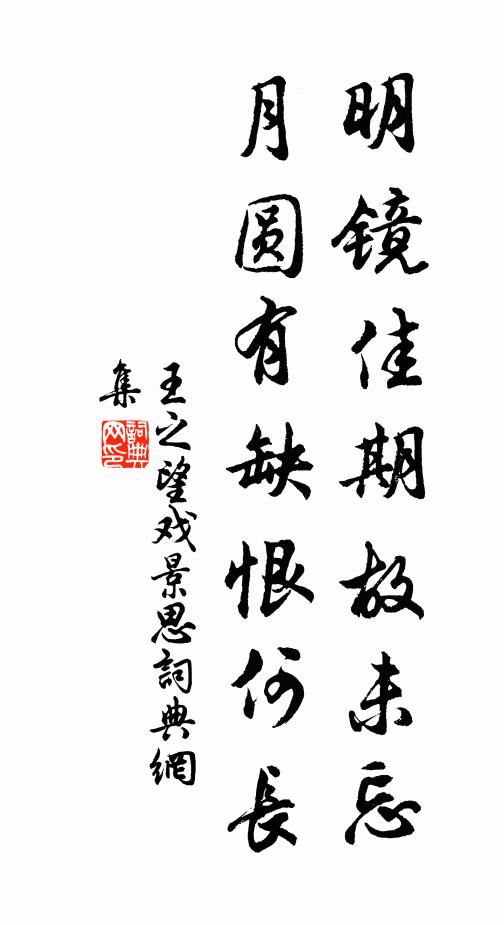 明镜佳期故未忘
月圆有缺恨何長
王之望戏景思詞典網
集
詞典
网印